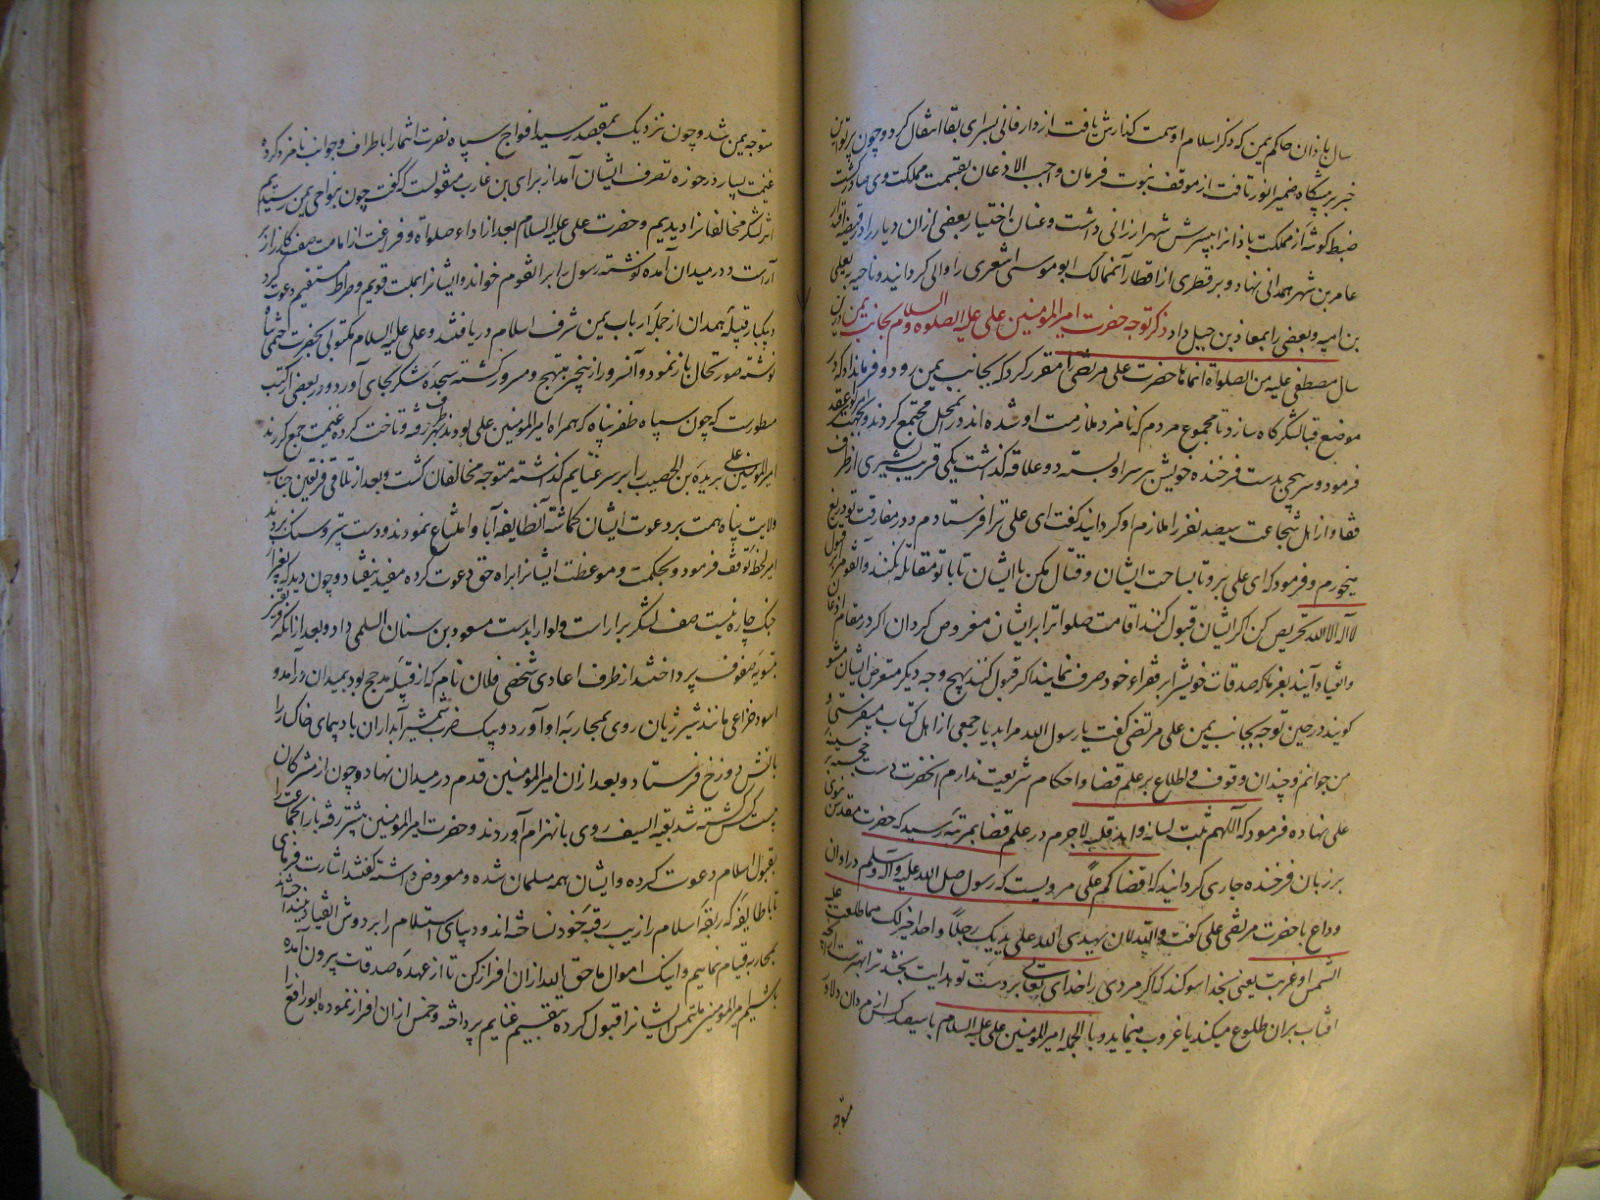 سال باذان حاکم یمن که ذکر اسلام او سمت کذارش یافت از دار فانی بسرای بقا انتقال کرد و چون پرتو این
خبر بر پیشگاه ضمیر انور تافت از موقف نبوت فرمان واجب الاذعان بقسمت مملکت وی صادر کشت
ضبط کوشهٔ از مملکت باذانرا بپسرش شهر ارزانی داشت و عنان اختیار بعضی ازان دیار را در قبضه اقتدار
عامر بن شهر همدانی نهاد و بر قطری از اقطار آنممالک ابو موسی اشعری را والی کردانید و ناحیه به یعلی
بن امیه و بعضی را بمعاذ بن جبل داد ذکر توجه حضرت امیر المؤمنین علی علیه الصلوه والسلام بجانب یمن درین
سال مصطفی علیه من الصلواة انماها حضرت علی مرتضی را مقرر کرد که بجانب یمن رود و فرمانداد که در
موضع قبا لشکر کاه سازد تا مجموع مردم که نامزد ملازمت او شده اند در انمحل مجتمع کردند و بجهت او لوا عقد
فرمود و سرپیچی بدست فرخنده خویش بر سر او بسته دو علاقه کذاشت یکی قریب بشبری از طرف
قفا و از اهل شجاعت سیصد نفر را ملازم او کردانید کفت ای علی ترا فرستادم و در مفارقت تو دریغ
میخورم و فرمود که ای علی برو تا بساحت ایشان و قتال مکن با ایشان تا با تو مقاتله نکنند و آنقوم را بر قبول
لا اله الا الله تحریص کن اکر ایشان قبول کنند اقامت صلوات را بر ایشان مفروض کردان اکر در مقام اذعان
و انقیاد آیند بفرما که صدقات خویش را بر فقراء خود صرف نمایند اکر قبول کنند بهیچ وجه دیکر متعرض ایشان مشو
کویند در حین توجه بجانب یمن علی مرتضی کفت یا رسول الله مرا بدیار جمعی از اهل کتاب میفرستی و
من جوانم و چندان وقوف و اطلاع بر علم قضا و احکام شریعت ندارم انحضرت دست خجسته بر سینه
علی نهاده فرمود که اللهم ثبت لسانه واهد قلبه لاجرم در علم قضا بمرتبه رسید که حضرت مقدس نبوی
بر زبان فرخنده جاری کردانید که اقضاکم علی مرویست که رسول صلی الله علیه وآله وسلم در اوان
وداع با حضرت مرتضی علی کفت والله لان یهدی الله علی یدیک رجلا واحدا خیر لک مما طلعت علیه
الشمس او غربت یعنی بخدا سوکند که اکر مردی را خدای تعالی بر دست تو هدایت بخشد ترا بهتر است از انچه
افتاب بران طلوع میکند یا غروب مینماید و بالجمله امیر المؤمنین علی علیه السلام با سیصد کس از مردان دلاور
متوجه
متوجه یمن شد و چون نزدیک بمقصد رسید افواج سپاه نصرت انتما را باطراف و جوانب نامزد کرده
غنیمت بسیار در حوزه تصرف ایشان آمد از برای بن عازب منقولست که کفت چون بنواحی یمن رسیدیم
اثر لشکر مخالفانرا دیدیم و حضرت علی علیه السلام بعد از اداء صلواة و فراغت از امامت صف کارزار
آراست و در میدان آمده نوشته رسول را بر آنقوم خواند و ایشانرا بملت قویم و صراط مستقیم دعوت کرد
و بیکبار قبیله همدان از جمله ارباب یمن شرف اسلام دریافتند و علی علیه السلام مکتوبی بحضرت ختمی پناه
نوشته صورتحال باز نمود و آنسرور ازین خبر مبتهج و مسرور کشته سجدهٔ شکر بجای آورد و در بعضی از کتب
مسطورست که چون سپاه ظفر پناه که همراه امیر المؤمنین علی بودند بهر طرف رفته و تاخت کرده غنیمت جمع کردند
امیر المؤمنین علی بریده بن الحصیب را بر سر غنایم کذاشته متوجه مخالفان کشت و بعد از تلاقی فریقین جناب
ولایت پناه همت بر دعوت ایشان کماشته آنطایفه آبا و امتناع نمودند و دست بتیر و سنک بردند
امیر لحظهٔ توقف فرمود و بحکمت و موعظت ایشانرا براه حق دعوت کرده مفید نیفتاد و چون دید که بغیر از
جنک چاره نیست صف لشکر بیاراست و لوا را بدست مسعود بن سنان السلمی داد و بعد از انکه
بتسویه صفوف پرداختند از طرف اعادی شخصی فلان نام که از قبیله مذحج بود بمیدان درآمد و
اسود خزاعی مانند شیر ژیان روی بمحاربهٔ او آورد و بیک ضرب شمشیر آبدار ان بادپیمای خاکسار را
باتش دوزخ فرستاد و بعد ازان امیر المؤمنین قدم در میدان نهاد و چون از مشرکان
بیست کس کشته شد بقیة السیف روی بانهزام آوردند و حضرت امیر المؤمنین پیشتر رفته باز انجماعت را
بقبول اسلام دعوت کرده و ایشان همه مسلمان شده و معروض داشته کفتند اشارت فرمای
تا با طایفهٔ که ربقهٔ اسلام را زیب رقبهٔ خود نساخته اند و دیبای استسلام را بر دوش انقیاد نینداخته
بمحاربه قیام نماییم و اینک اموال ما حق الله ازان افراز کن تا از عهدهٔ صدقات بیرون آمده
باشیم امیر المؤمنین ملتمس ایشانرا قبول کرده بتقسیم غنایم پرداخته و خمس ازان افراز نموده ابو رافع را